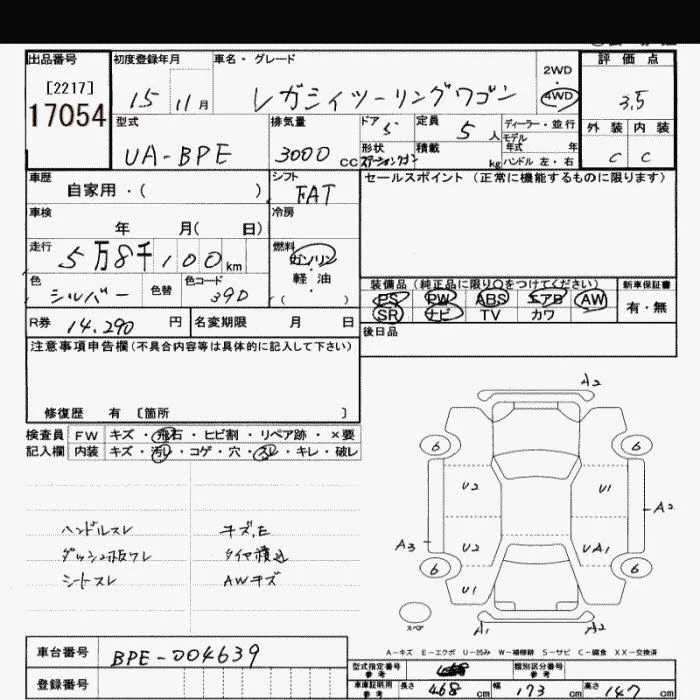 出品番号 初度登録年月 車名・グレード 2WD・4WD 評価点
[2217]
17054 15年 11月 レガシィツーリングワゴン 3.5
型式 排気量 ドア 5 定員 5人 ディーラー・並行 外装 内装
モデル年式 年
UA-BPE 3000cc 形状 ステーションワゴン 積載 kg ハンドル 左・右 C C
車歴 シフト セールスポイント(正常に機能するものに限ります)
自家用・( ) FAT
車検 冷房
年 月( 日)
走行 燃料
5万8千100km ガソリン・軽油
色 色替 色コード ( )
シルバー 390
装備品(純正品に限り○をつけてください) 新車保証書
PS PW ABS エアB AW 有・無
SR ナビ TV カワ
R券 14.290円 名変期限 月 日 後日品
注意事項申告欄(不具合内容等は具体的に記入して下さい)
修復歴 有 〔箇所 〕
検査員 FW キズ・飛石・ヒビ割・リペア跡・×要
記入欄 内装 キズ・汚レ・コゲ・穴・スレ・キレ・破レ
ハンドルスレ キズ,E
ダッシュ板ワレ タイヤ積込
シートスレ AWキズ
A2
6 6
U2 U1
A2
A3 U2 UA1
6 6
U1
スペア A1 A2
A-キズ E-エクボ U-凹み W-補修跡 S-サビ C-腐食 XX-交換済
車台番号 BPE-004639
登録番号
型式指定番号 参考 類別区分番号 参考
車庫証明用 参考 長さ 468cm 幅 173cm 高さ 147cm